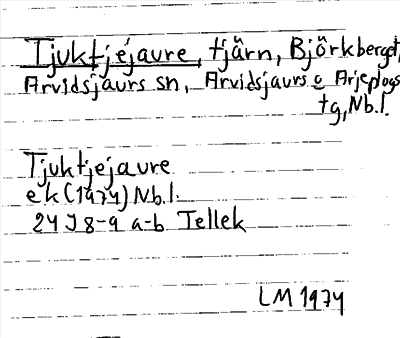 Tjuktjejaure, tjärn, Björkberget,
Arvidsjaurs sn, Arvidsjaurs o Arjeplogs
tg, Nb.l.
Tjuktjejaure
ek (1974) Nb.l.
24 J 8-9 a-b Tellek
LM 1974